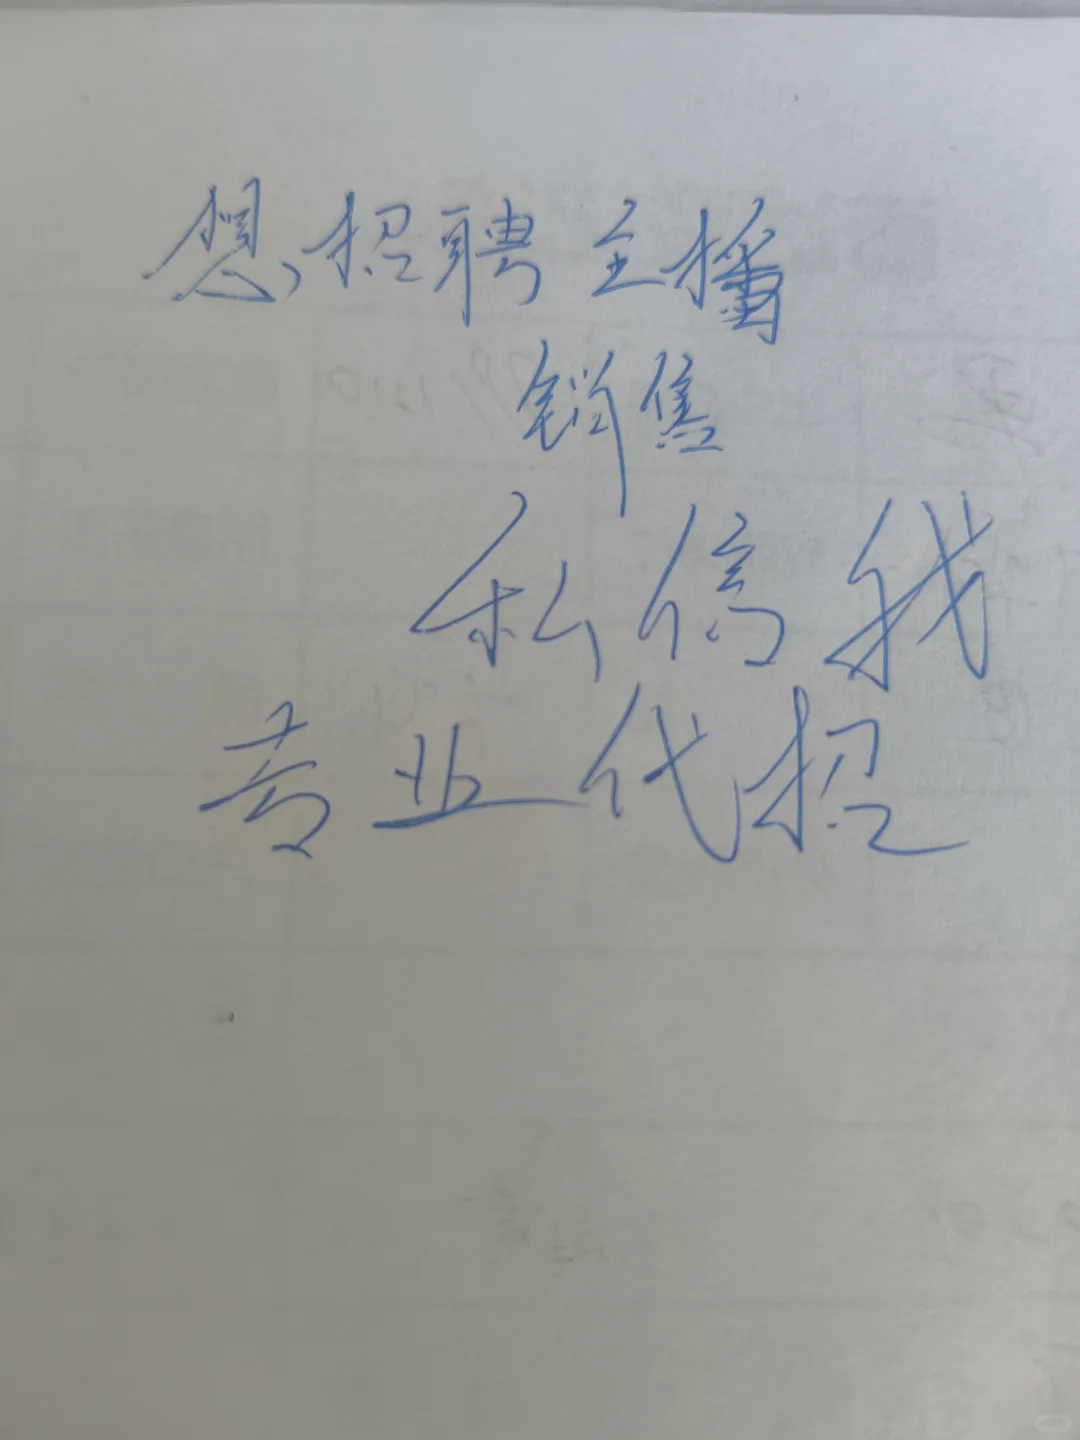 想招聘主播
销售
私信我
专业代招